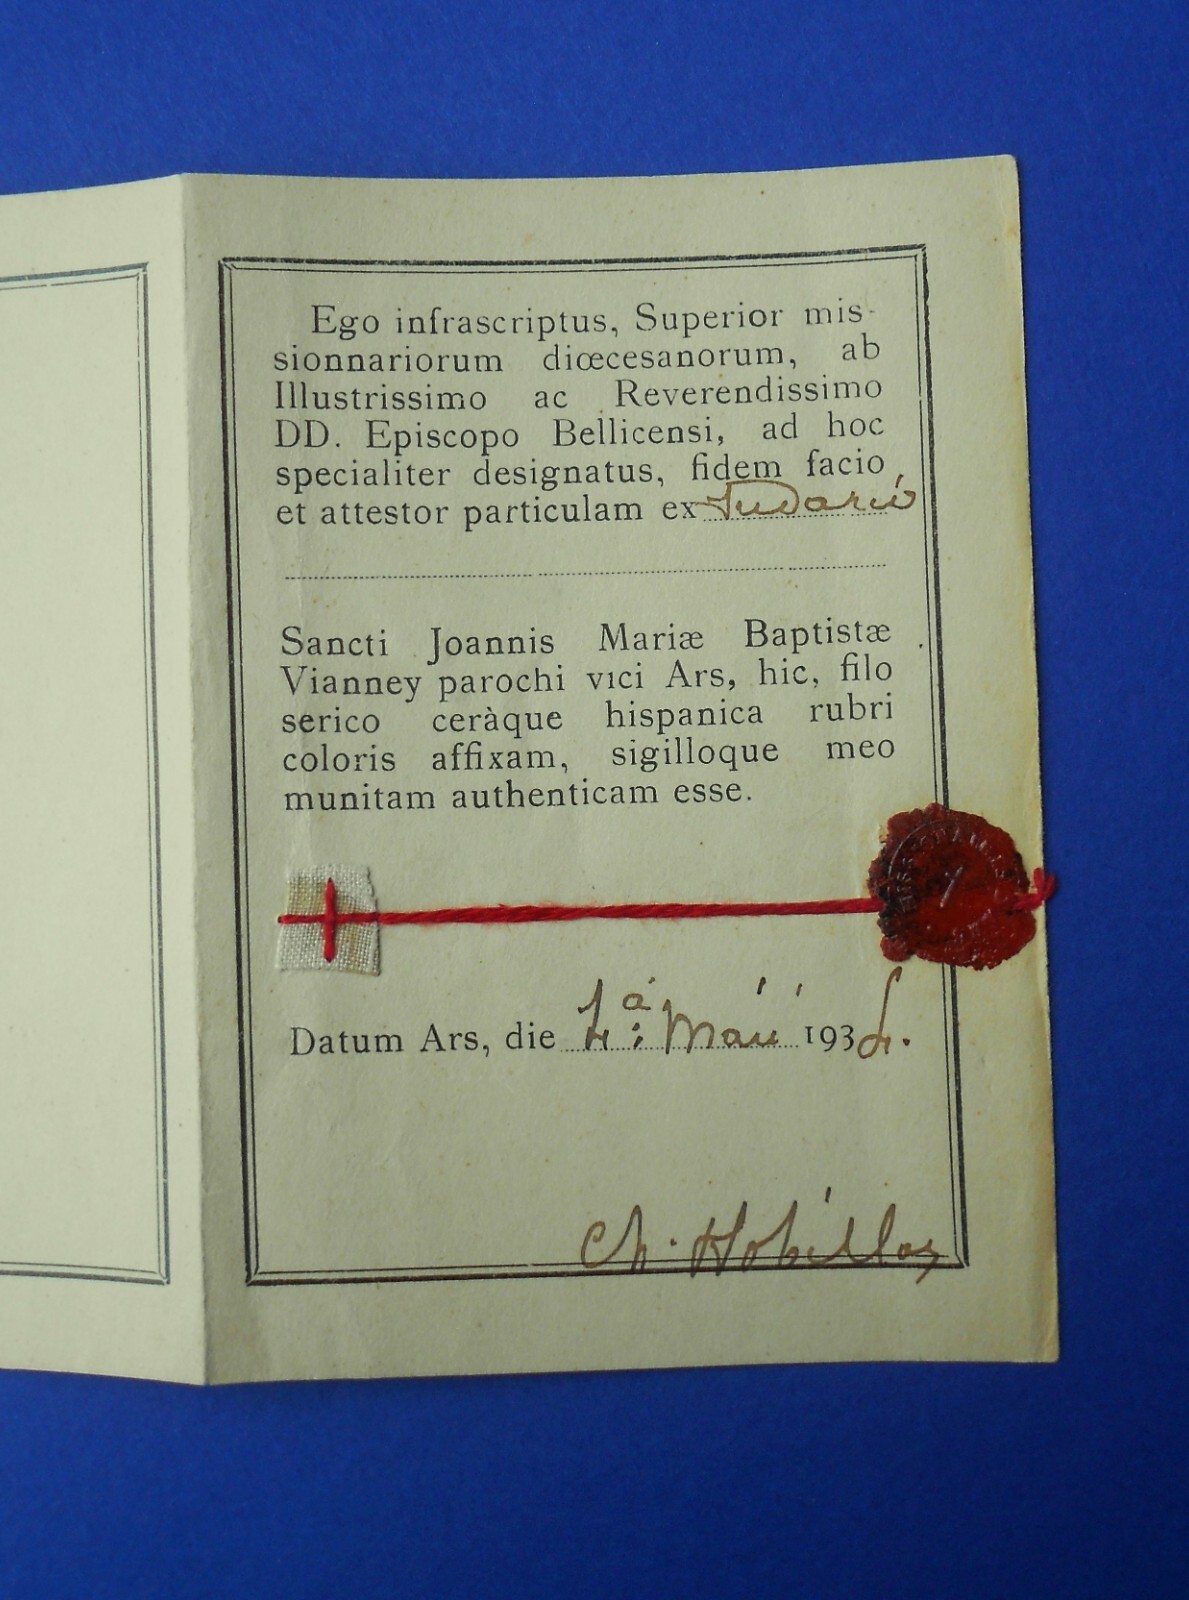 Ego infrascriptus, Superior mis-
sionnariorum diœcesanorum, ab
Illustrissimo ac Reverendissimo
DD. Episcopo Bellicensi, ad hoc
specialiter designatus, fidem facio,
et attestor particulam ex Sudario
Sancti Joannis Mariæ Baptistæ
Vianney parochi vici Ars, hic, filo
serico ceràque hispanica rubri
coloris affixam, sigilloque meo
munitam authenticam esse.
Datum Ars, die 4a Maii 1934.
Ch.